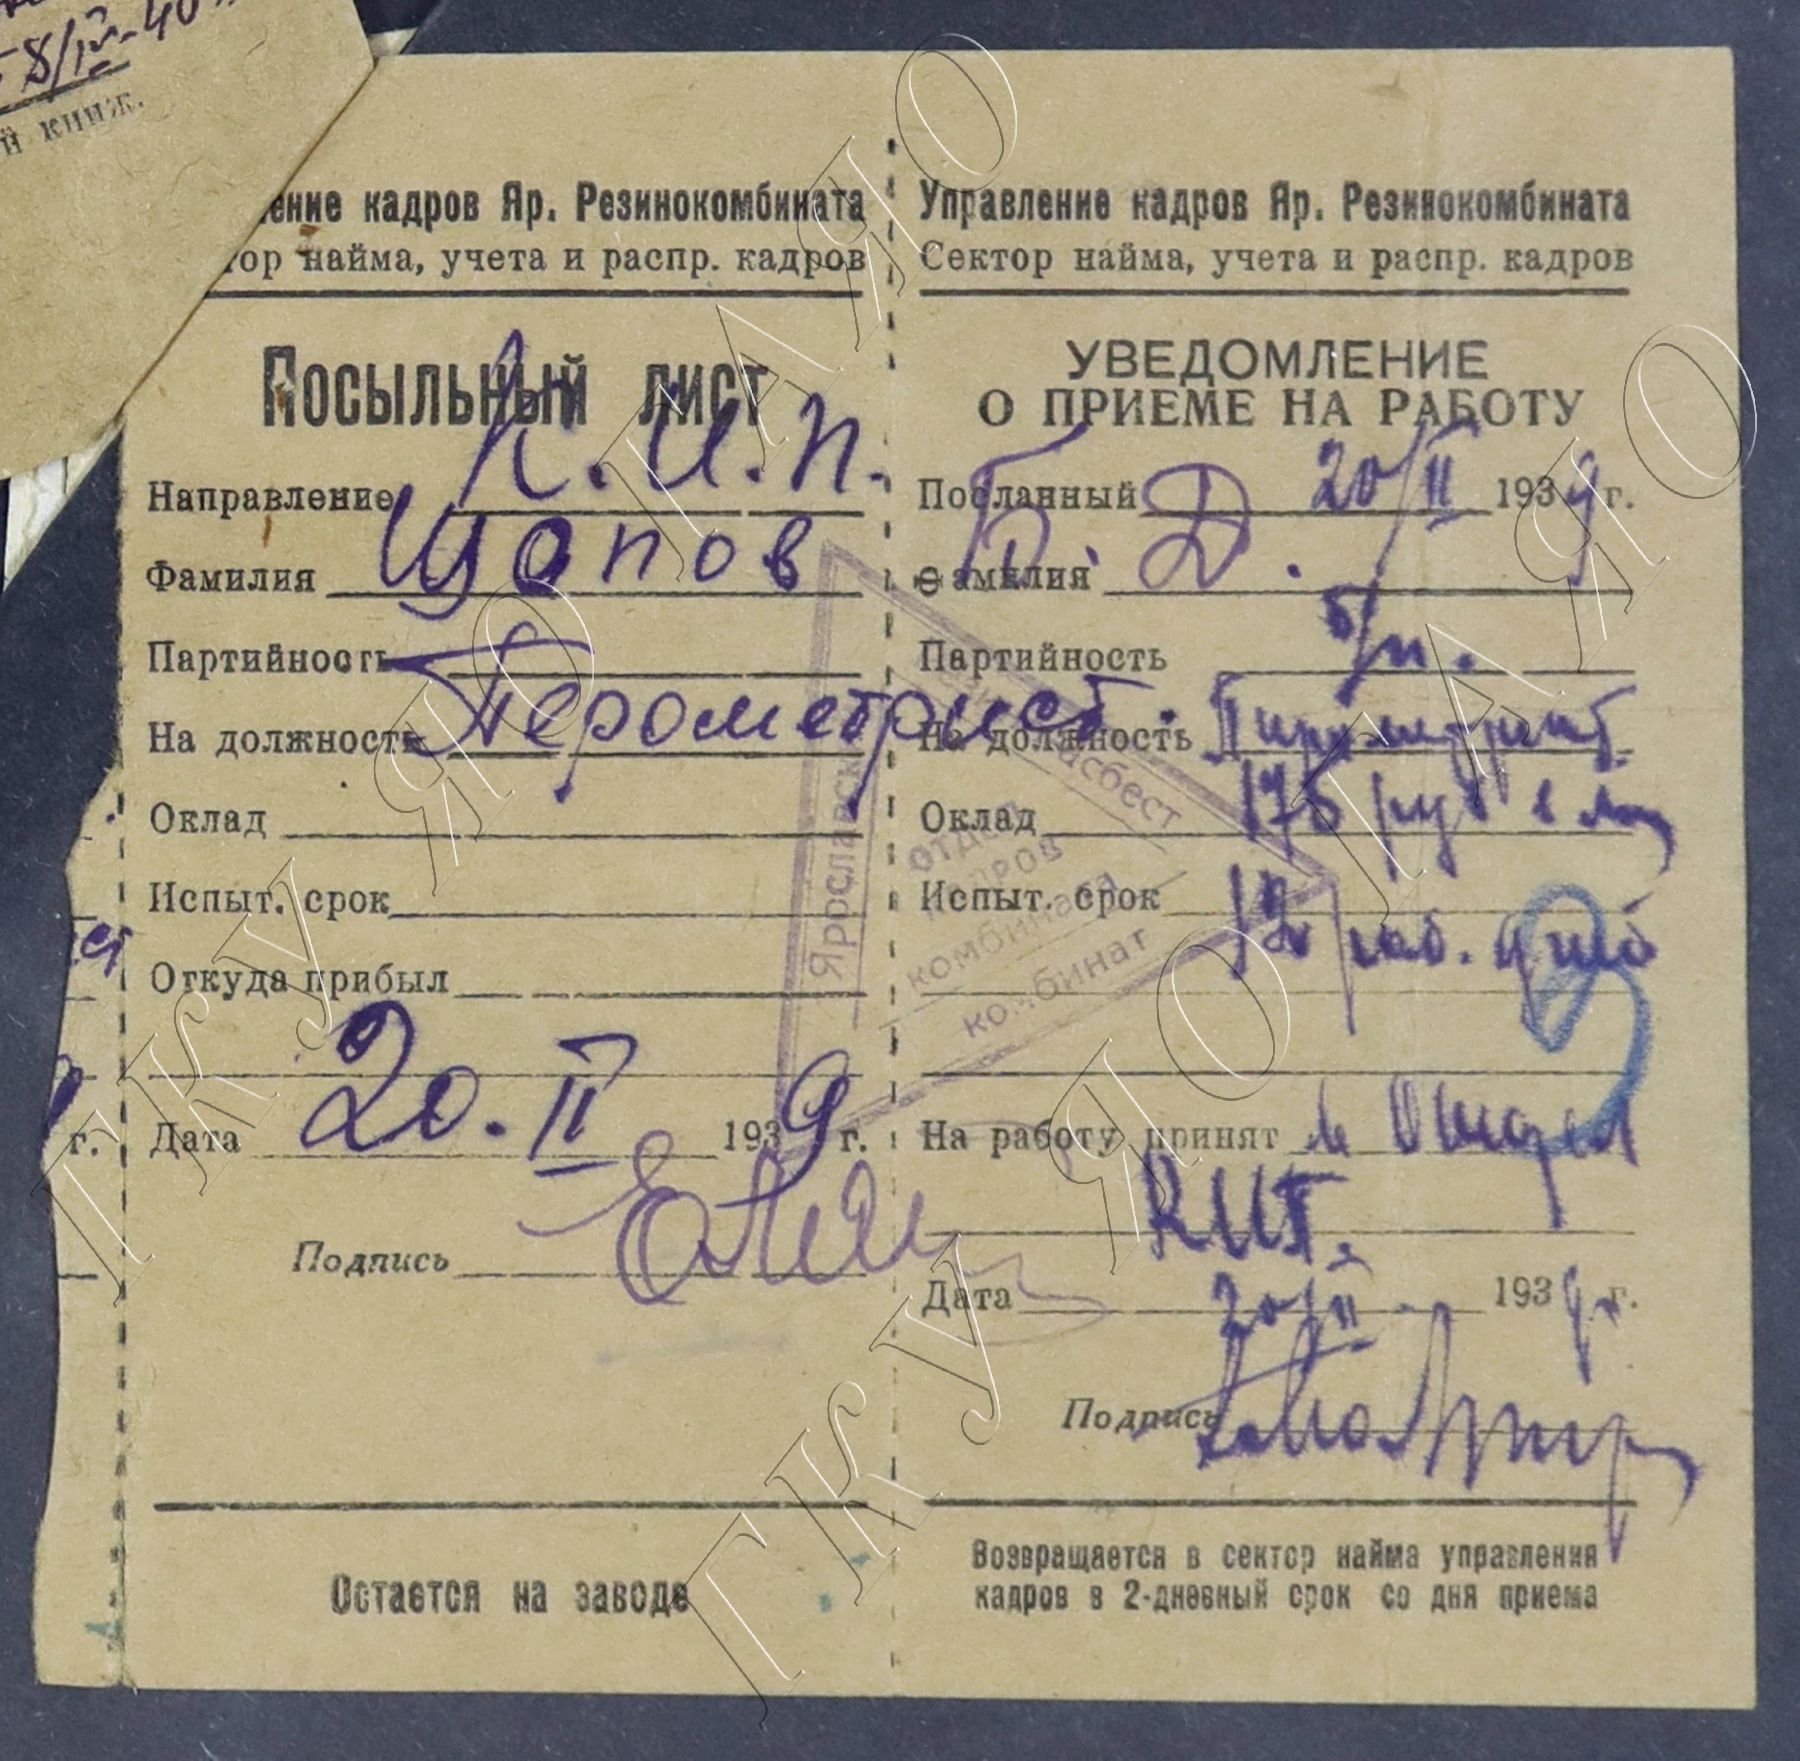 8/IV-40
й книж.
ение кадров Яр. Резинокомбината
тор найма, учета и распр. кадров
Посыльный лист
Направление К.И.П.
Фамилия Щапов
Партийность
На должность Перометрист.
Оклад
Испыт. срок
Откуда прибыл
Дата 20.II 1939 г.
Подпись
Остается на заводе
Управление кадров Яр. Резинокомбината
Сектор найма, учета и распр. кадров
УВЕДОМЛЕНИЕ
О ПРИЕМЕ НА РАБОТУ
Посланный 20/II 1939 г.
Фамилия Б. Д.
Партийность б/п.
На должность Пирометрист
Оклад 175 руб в м
Испыт. срок 12 раб. дней
На работу принят в Отдел
КИП.
Дата 20/II 1939 г.
Подпись
Возвращается в сектор найма управления
кадров в 2-дневный срок со дня приема
Ярославск
асбест
отдел
кадров
комбината
комбинат
г.
ГКУ ЯО ГАЯО
ГКУ ЯО ГАЯО